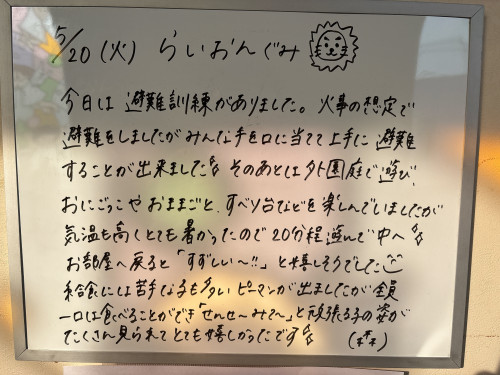 5/20(火) らいおんぐみ
今日は避難訓練がありました。火事の想定で
避難をしましたがみんな手を口に当てて上手に避難
することが出来ました そのあとは外園庭で遊び、
おにごっこやおままごと、すべり台などを楽しんでいましたが
気温も高くとても暑かったので20分程遊んで中へ
お部屋へ戻ると「すずしい〜!!」と嬉しそうでした
給食には苦手な子も多いピーマンが出ましたが全員
一口は食べることができ「せんせ〜みて〜」と頑張る子の姿が
たくさん見られてとても嬉しかったです